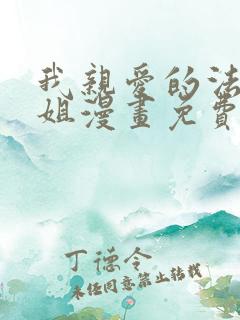 我親愛的法
姐漫畫免費
丁德令
未经同意禁止转载